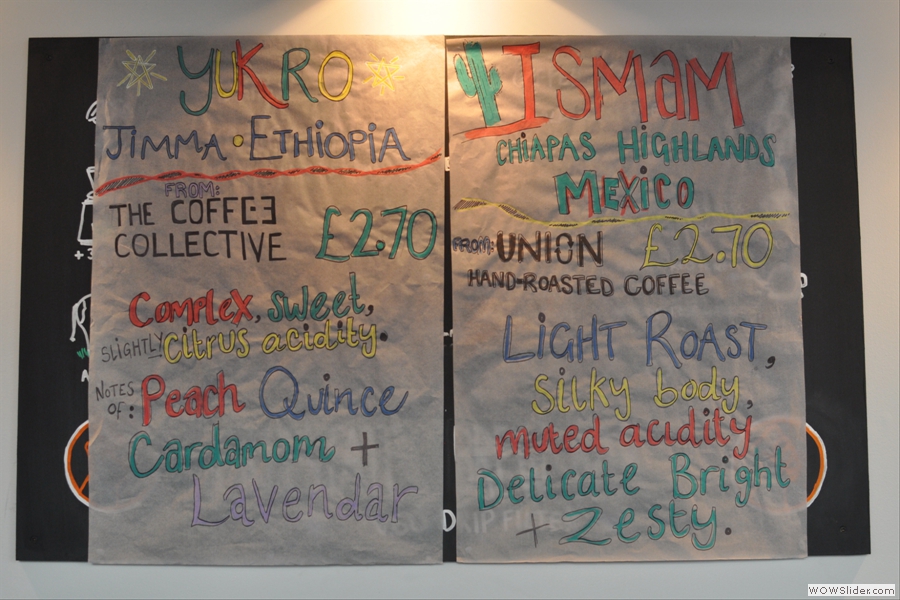 YUKRO
JIMMA • ETHIOPIA
FROM:
THE COFFEE
COLLECTIVE
£2.70
Complex, sweet,
SLIGHTLY Citrus acidity.
NOTES OF: Peach Quince
Cardamom +
Lavendar
ISMAM
CHIAPAS HIGHLANDS
MEXICO
FROM: UNION
HAND-ROASTED COFFEE
£2.70
LIGHT ROAST,
silky body,
muted acidity
Delicate Bright
+ Zesty.
WOWSlider.com